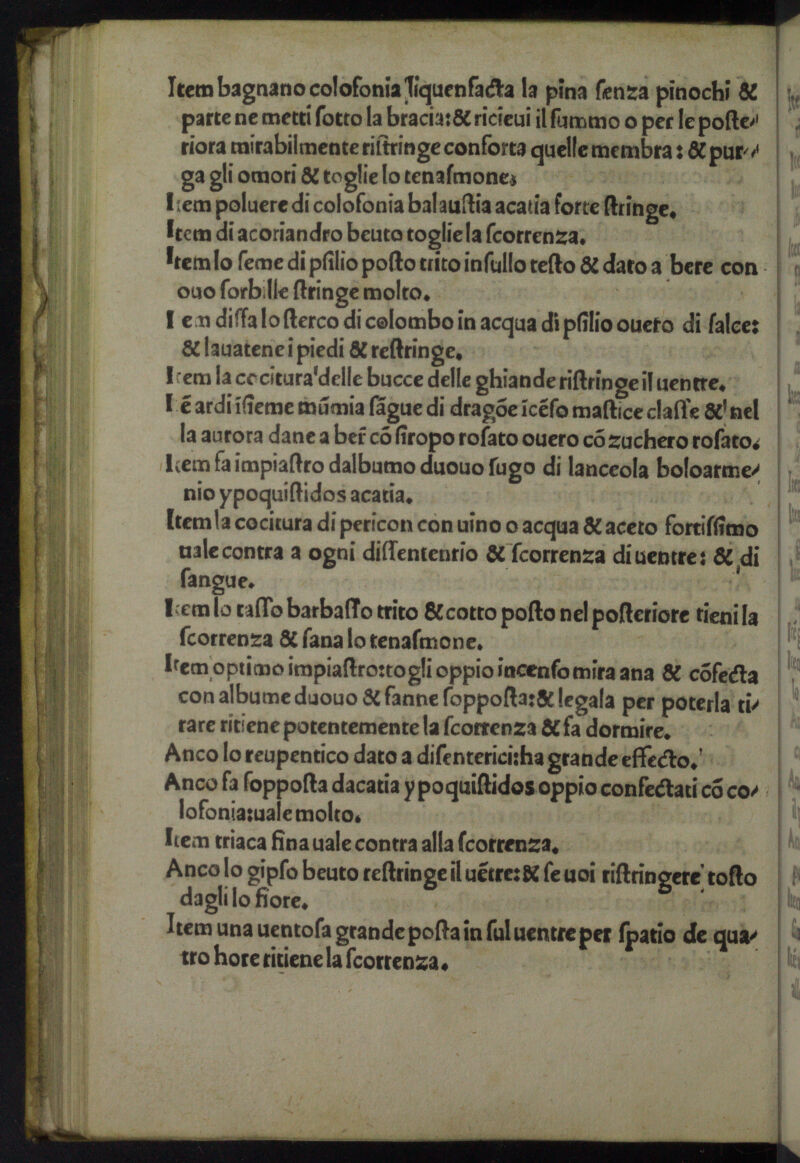 Item bagnano colofonia liquenfacta la pina ſenza pinochi &
parte ne metti ſotto la bracia:& riceui il fummo o per le poſte/
riora mirabilmente riſtringe conforta quelle membra: & pur/
ga gli omori & toglie lo tenaſmone;
Item poluere di colofonia balauſtia acatia forte ſtringe.
Item di acoriandro beuto toglie la ſcorrenza.
Item lo ſeme di pſilio poſto trito inſullo teſto & dato a bere con
ouo forbille ſtringe molto.
I em diſſa lo ſterco di colombo in acqua di pſilio ouero di ſalce:
& lauatene i piedi & reſtringe.
Item la cocitura delle bucce delle ghiande riſtringe il uentre.
I é ardi iſieme múmia ſágue di dragóe icéſo maſtice claſſe & nel
la aurora dane a ber có ſiropo roſato ouero có zuchero roſato.
Item fa impiaſtro dalbumo duouo ſugo di lanceola boloarme/
nio ypoquiſtidos acatia.
Item la cocitura di pericon con uino o acqua & aceto fortiſſimo
uale contra a ogni diſſententrio & ſcorrenza di uentre: & di
ſangue.
Item lo taſſo barbaſſo trito & cotto poſto nel poſteriore tieni la
ſcorrenza & ſana lo tenaſmone.
Item optimo impiaſtro:togli oppio incenſo mira ana & cófecta
con albume duouo & fanne ſoppoſta:& legala per poterla ti/
rare ritiene potentemente la ſcorrenza & fa dormire.
Anco lo reupentico dato a diſenterici:ha grande effecto.
Anco fa ſoppoſta dacatia ypoquiſtidos oppio confectati có co/
lofonia:uale molto.
Item triaca fina uale contra alla ſcorrenza.
Anco lo gipſo beuto reſtringe il uétre:& ſe uoi riſtringere toſto
dagli lo fiore.
Item una uentoſa grande poſta in ſul uentre per ſpatio de qua/
tro hore ritiene la ſcorrenza.